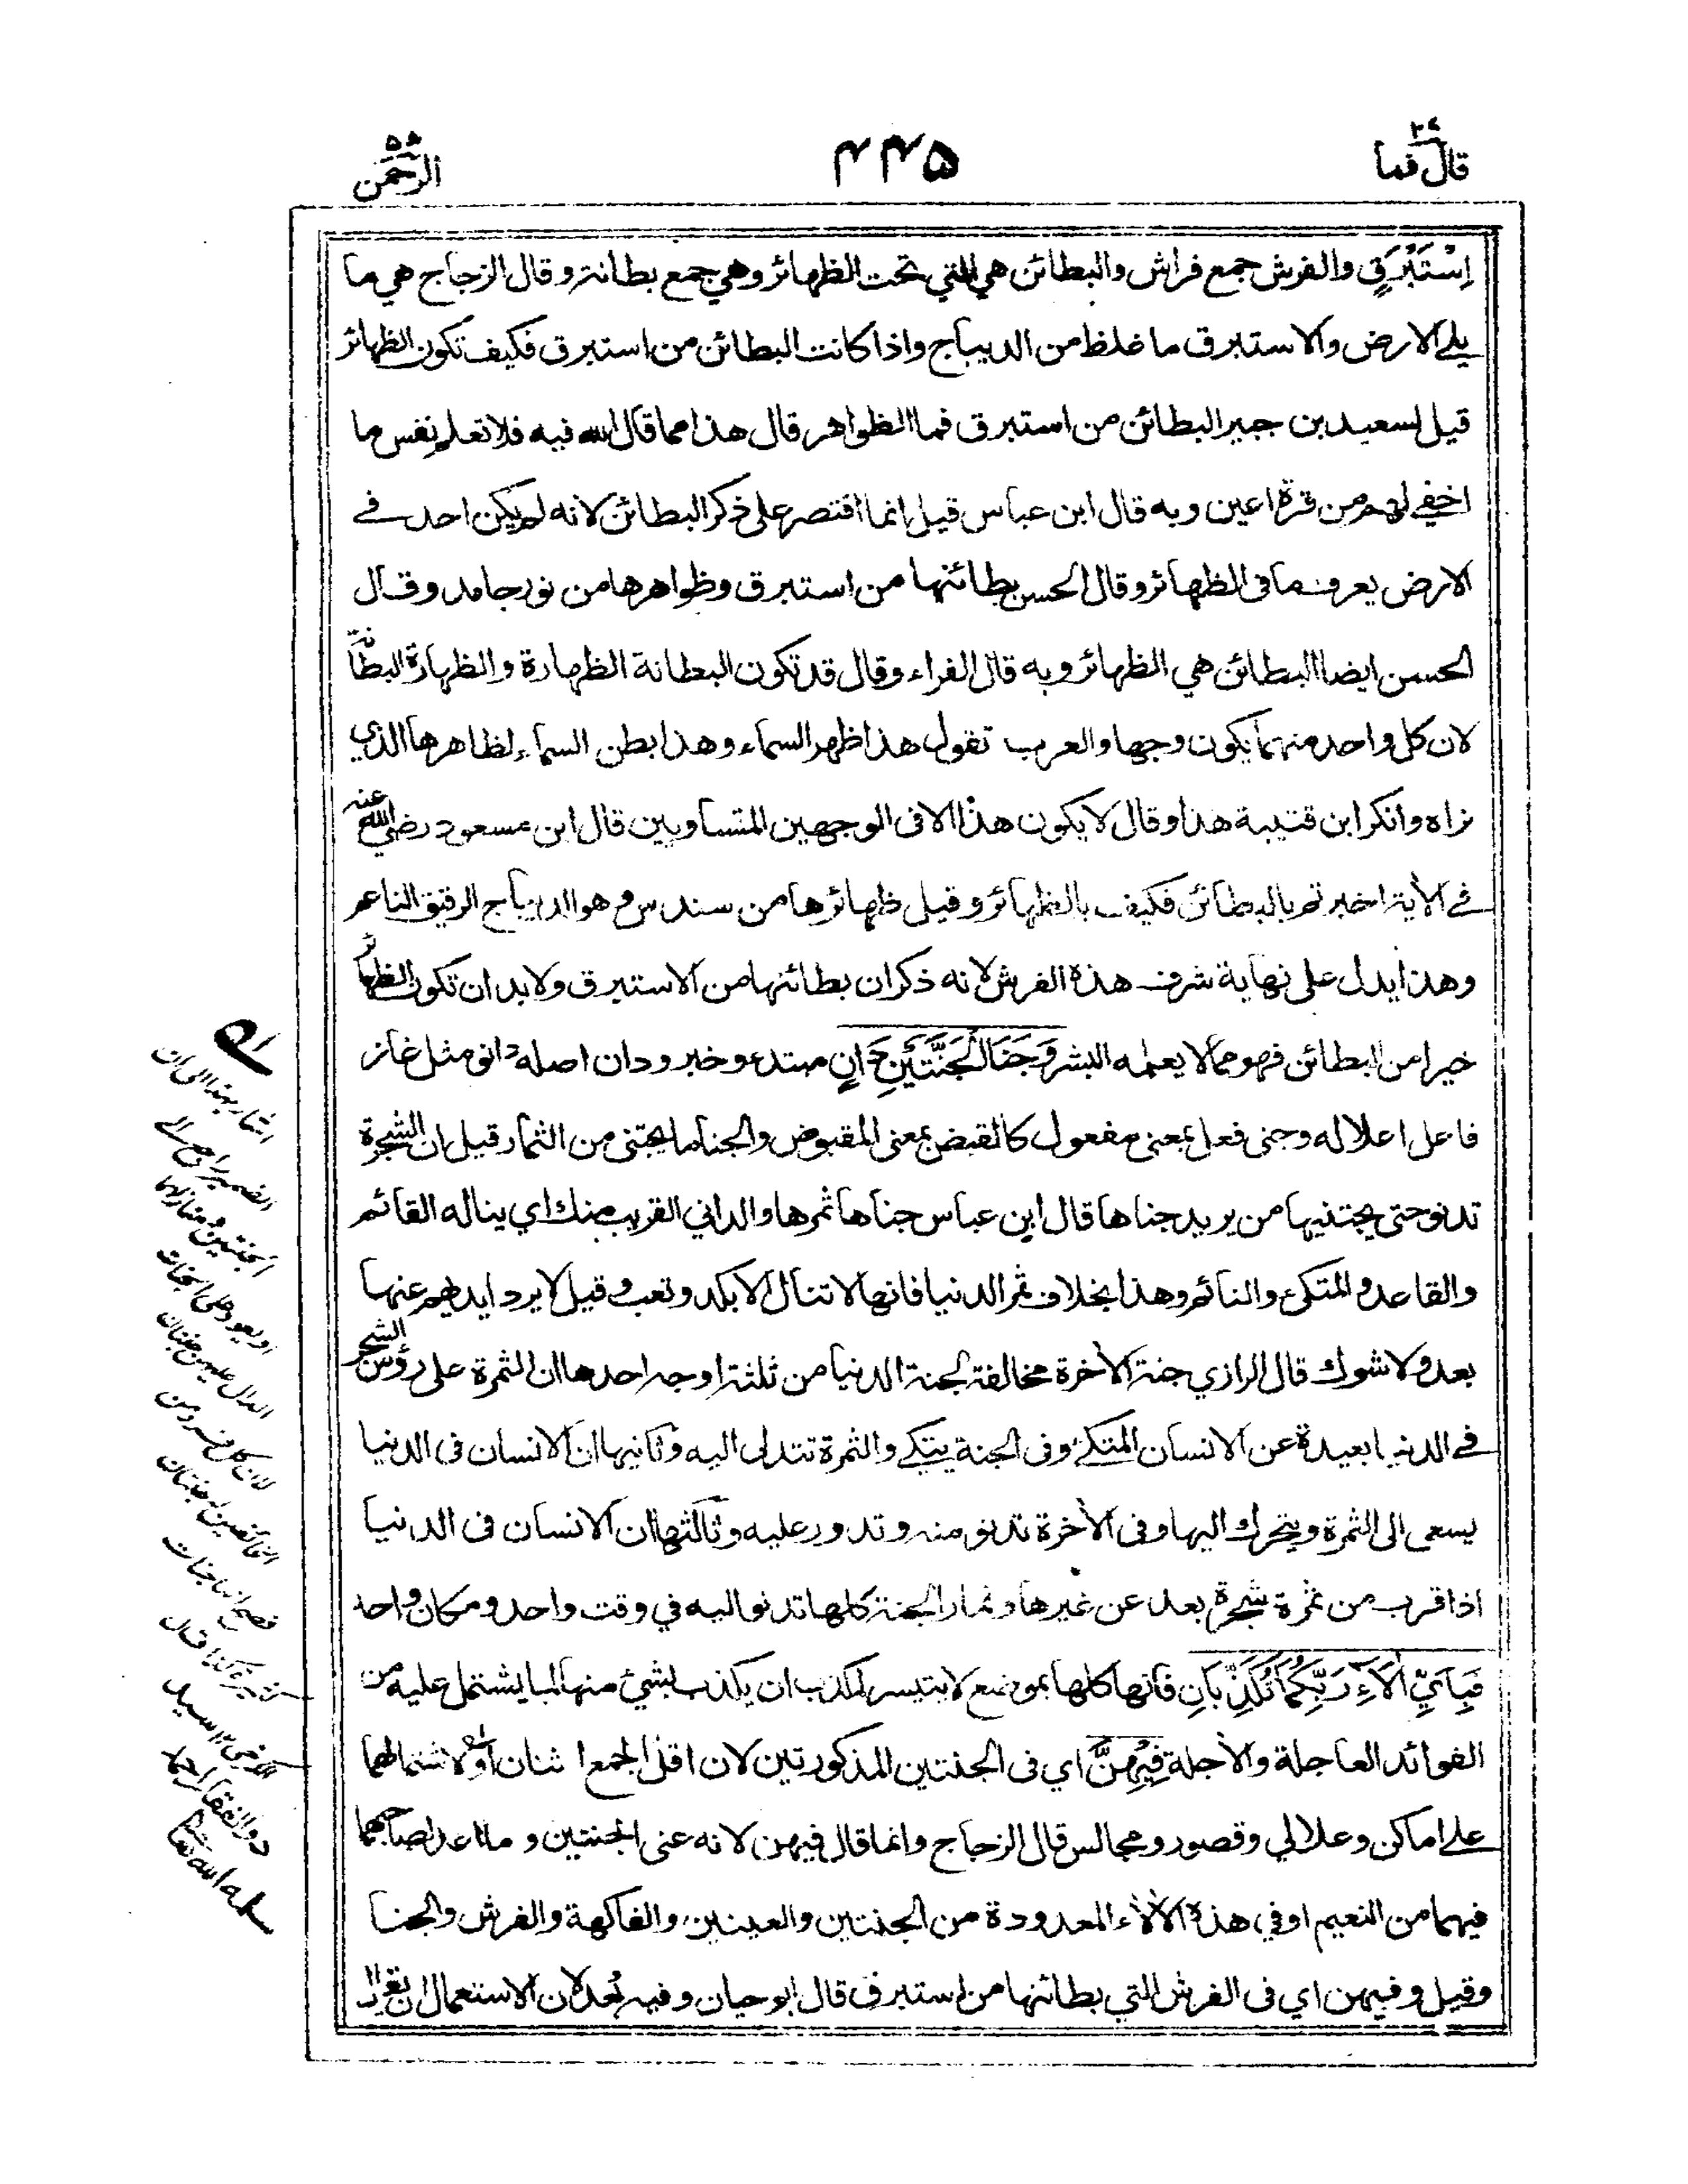 قال فما ٢٧
٤٤٥
الرحمن ٥٥
اِسْتَبْرَقٍ والفرش جمع فراش والبطائن هي التي تحت الظهائر وهي جمع بطانة وقال الزجاج هي ما
يلي الارض والاستبرق ما غلظ من الديباج واذا كانت البطائن من استبرق فكيف تكون الظهائر
قيل لسعيد بن جبير البطائن من استبرق فما الظواهر قال هذا مما قال الله فيه فلا تعلم نفس ما
اخفي لهم من قرة اعين وبه قال ابن عباس قيل انما اقتصر على ذكر البطائن لانه لم يكن احد في
الارض يعرف ما فى الظهائر وقال الحسن بطائنها من استبرق وظواهرها من نور جامد وقال
الحسن ايضا البطائن هي الظهائر وبه قال الفراء وقال قد تكون البطانة الظهارة والظهارة البطانة
لان كل واحد منهما يكون وجها والعرب تقول هذا ظهر السماء وهذا بطن السماء لظاهرها الذي
نراه وانكر ابن قتيبة هذا وقال لا يكون هذا الا فى الوجهين المتساويين قال ابن مسعود رضي الله عنه
في الأية اخبرتم بالبطائن فكيف بالظهائر وقيل ظهائرها من سندس وهو الديباج الرقيق الناعم
وهذا يدل على نهاية شرف هذة الفرش لانه ذكر ان بطائنها من الاستبرق ولا بد ان تكون الظهائر
خيرا من البطائن فهو مما لا يعلمه البشر وَجَنَا الْجَنَّتَيْنِ دَانٍ مبتدء وخبر ودان اصله دانو مثل غاز
فاعل اعلاله وجنى فعل بمعنى مفعول كالقبض بمعنى المقبوض والجنا ما يجتنى من الثمار قيل ان الشجرة
تدنو حتى يجتنيها من يريد جناها قال ابن عباس جناها ثمرها والداني القريب منك اي يناله القائم
والقاعد والمتكئ والنائم وهذا بخلاف ثمر الدنيا فانها لا تنال الا بكد وتعب وقيل لا يرد ايديهم عنها
بعد ولا شوك قال الرازي جنة الأخرة مخالفة لجنة الدنيا من ثلثة اوجه احدها ان الثمرة على رؤس الشجر
في الدنيا بعيدة عن الانسان المتكئ وفى الجنة يتكي والثمرة تتدلى اليه وثانيها ان الانسان فى الدنيا
يسعى الى الثمرة ويتحرك اليها وفى الأخرة تدنو منه وتدور عليه وثالثها ان الانسان فى الدنيا
اذا قرب من ثمرة شجرة بعد عن غيرها وثمار الجنة كلها تدنو اليه في وقت واحد ومكان واحد
فَبِاَيِّ اٰلَآءِ رَبِّكُمَا تُكَذِّبَانِ فانها كلها بموضع لا يتيسر لمكذب ان يكذب بشئ منها لما يشتمل عليه من
الفوائد العاجلة والأجلة فِيْهِنَّ اي فى الجنتين المذكورتين لان اقل الجمع اثنان او لاشتمالهما
على اماكن وعلالي وقصور ومجالس قال الزجاج وانما قال فيهن لانه عنى الجنتين وما اعد لصاحبهما
فيهما من النعيم او في هذة الألاء المعدودة من الجنتين والعينين والفاكهة والفرش والجنا
وقيل وفيهن اي فى الفرش التي بطائنها من استبرق قال ابو حيان وفيه بُعد لان الاستعمال ان يقال
اشار بهذا الى ان
الضمير راجع الى
الجنتين ومنازلهما
او يعود على الجنات
الدال عليهن جنتان
لان كل فرد من
الخائفين له جنتان
فصح انها جنات
كثيرة كذا قال
الكرخي ١٢ سيد
ذو الفقار احمد
سلمه الله تعالى